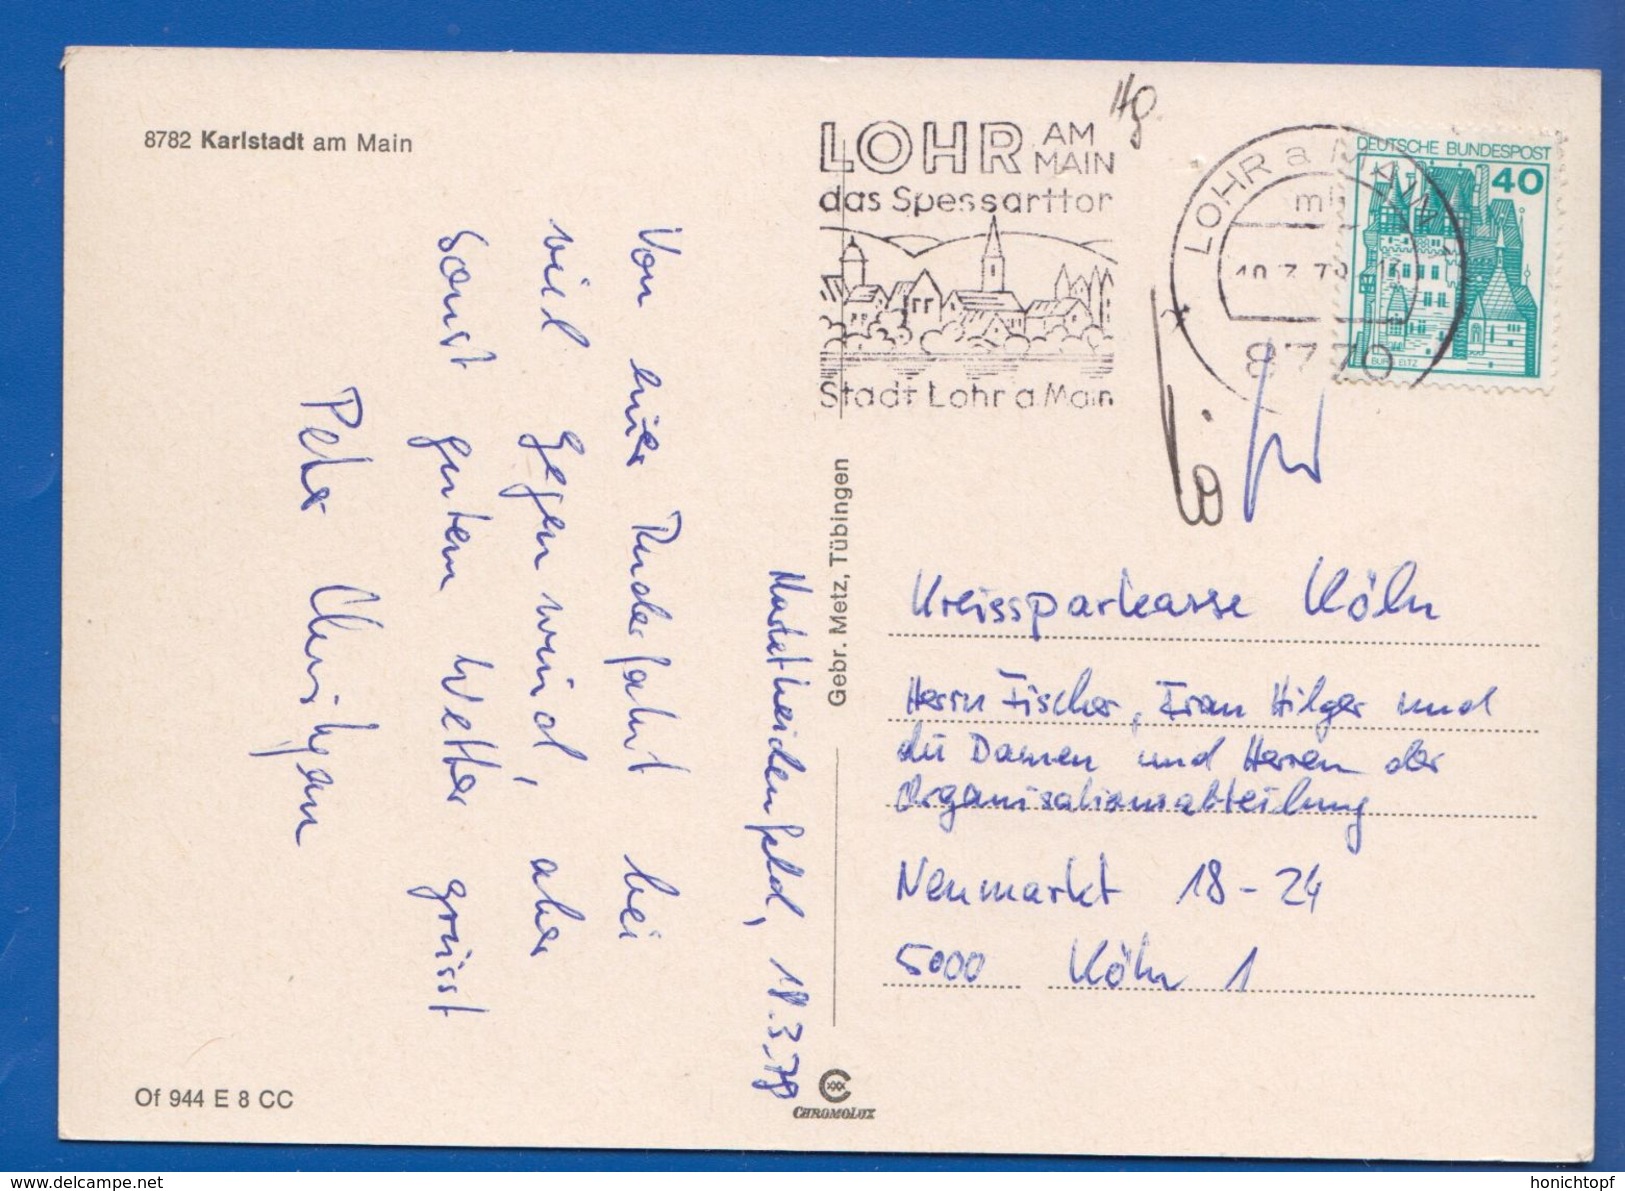 8782 Karlstadt am Main
Marktheidenfeld, 18.3.78
Von einer Ruderfahrt bei
viel Gegenwind, aber
sonst gutem Wetter grüsst
Peter
Of 944 E 8 CC
Gebr. Metz, Tübingen
CHROMOLUX
LOHR AM MAIN
das Spessarttor
Stadt Lohr a. Main
LOHR a MAIN
8770
DEUTSCHE BUNDESPOST
40
BURG ELTZ
Kreissparkasse Köln
Herrn Fischer, Frau Hilger und
die Damen und Herren der
Organisationsabteilung
Neumarkt 18-24
5000 Köln 1
delcampe.net
honichtopf